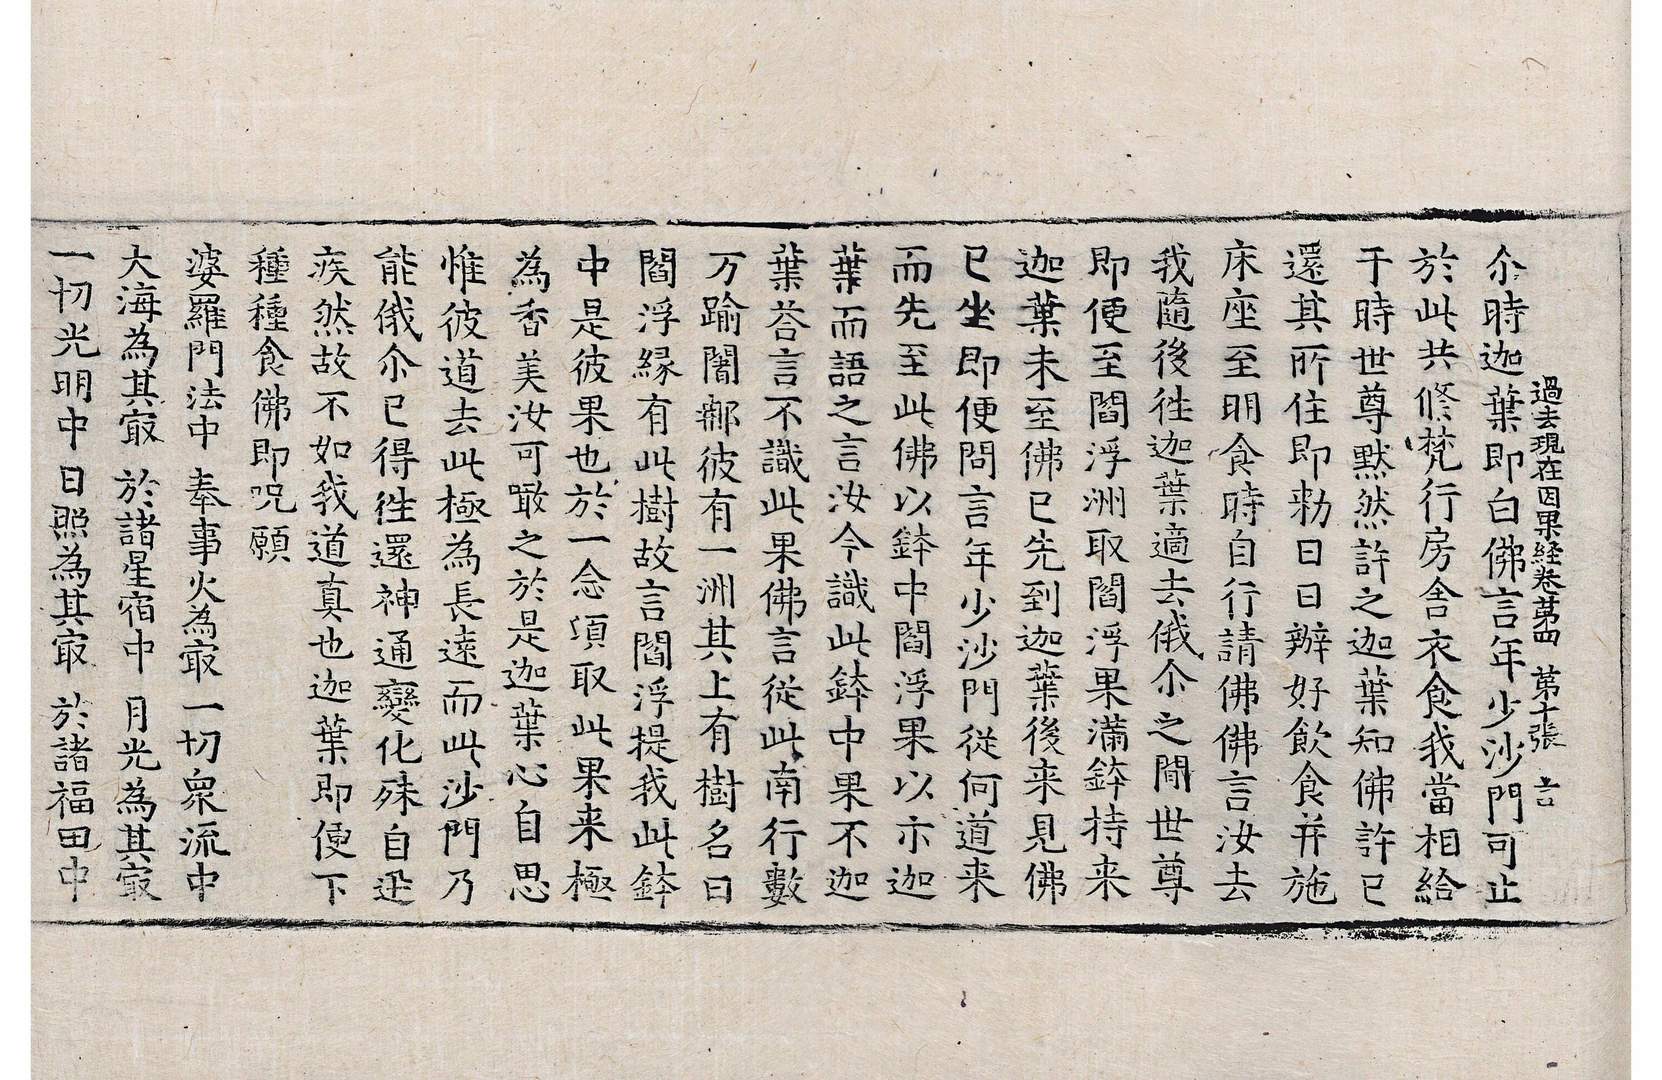 過去現在因果経卷苐四　苐十張　言
尒時迦葉即白佛言年少沙門可止
於此共修梵行房舎衣食我當相給
于時世尊黙然許之迦葉知佛許已
還其所住即勑日日辦好飲食并施
床座至明食時自行請佛佛言汝去
我隨後徃迦葉適去俄尒之閒世尊
即便至閻浮洲取閻浮果滿鉢持来
迦葉未至佛已先到迦葉後来見佛
已坐即便問言年少沙門從何道来
而先至此佛以鉢中閻浮果以示迦
葉而語之言汝今識此鉢中果不迦
葉荅言不識此果佛言從此南行數
万踰闍那彼有一洲其上有樹名曰
閻浮緣有此樹故言閻浮提我此鉢
中是彼果也於一念頃取此果来極
為香美汝可噉之於是迦葉心自思
惟彼道去此極為長遠而此沙門乃
能俄尒已得徃還神通變化殊自迅
疾然故不如我道真也迦葉即便下
種種食佛即呪願
婆羅門法中　奉事火為㝡　一切衆流中
大海為其㝡　於諸星宿中　月光為其㝡
一切光明中　日照為其㝡　於諸福田中